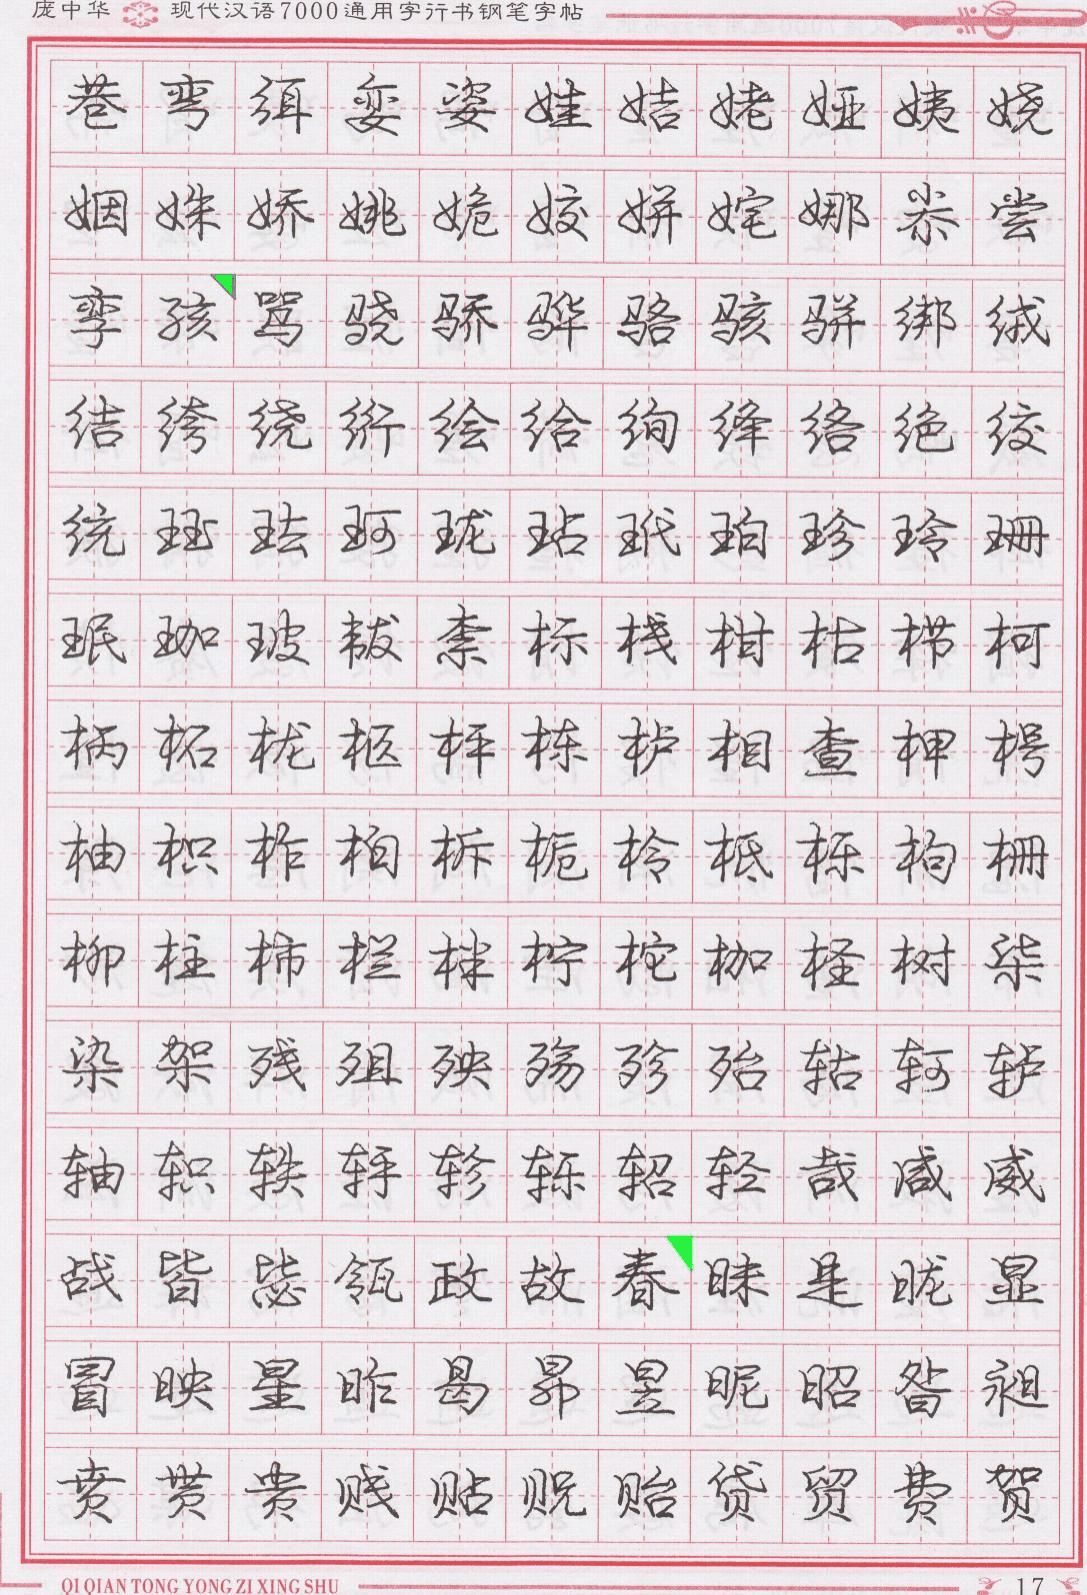 庞中华 现代汉语7000通用字行书钢笔字帖
巷弯弭娈姿娃姞姥娅姨娆
姻姝娇姚姽姣姘姹娜忝尝
孪孩骂骁骄骅骆骇骈绑绒
结绔绕绗绘给绚绛络绝绞
统珏珐珂珑玷玳珀珍玲珊
珉珈玻韨柰标栈柑枯栉柯
柄柘栊柩枰栋栌相查柙枵
柚枳柞柏柝栀柃柢栎枸栅
柳柱柿栏柈柠柁枷柽树柒
染架残殂殃殇殄殆轱轲轳
轴轵轶轷轸轹轺轻哉咸威
战皆毖瓴政故春昧是昽显
冒映星昨曷昴昱昵昭昝昶
贲贳贵贱贴贶贻贷贸费贺
QI QIAN TONG YONG ZI XING SHU 17